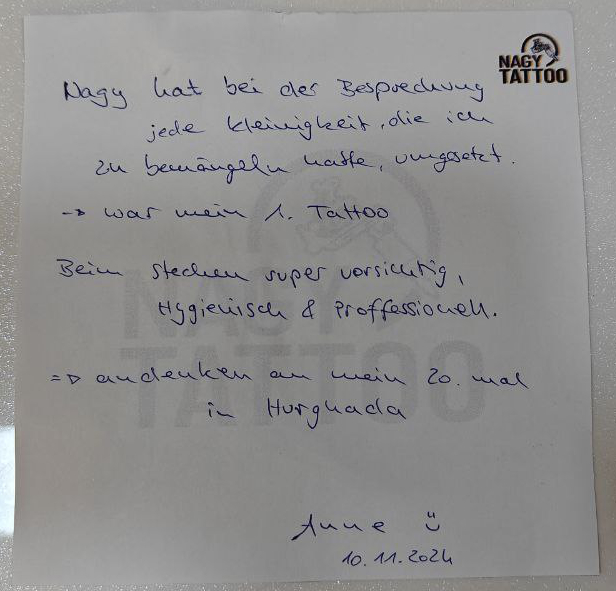 NAGY
TATTOO
Nagy hat bei der Besprechung
jede kleinigkeit, die ich
zu bemängeln hatte, umgesetzt.
-> war mein 1. Tattoo
Beim stechen super vorsichtig,
Hygienisch & Proffessionell.
=> andenken an mein 20. mal
in Hurghada
NAGY
TATTOO
Anne ü
10.11.2024